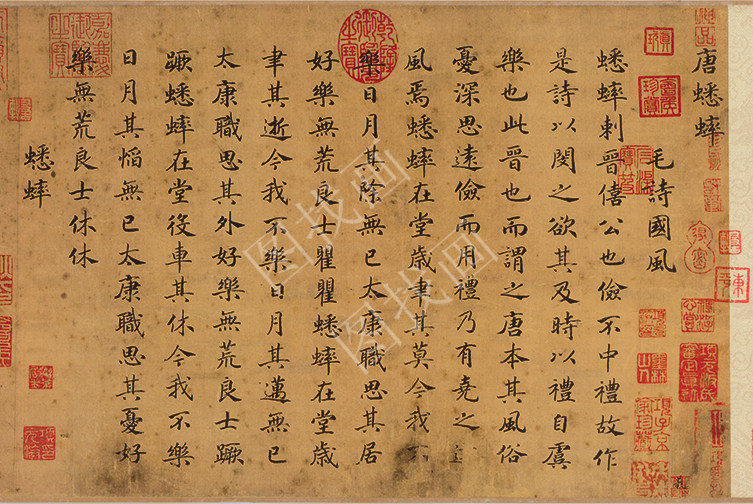 唐蟋蟀
毛詩國風
蟋蟀刺晉僖公也儉不中禮故作
是詩以閔之欲其及時以禮自虞
樂也此晉也而謂之唐本其風俗
憂深思遠儉而用禮乃有堯之
風焉蟋蟀在堂歲聿其莫今我
樂日月其除無已太康職思其居
好樂無荒良士瞿瞿蟋蟀在堂歲
聿其逝今我不樂日月其邁無已
太康職思其外好樂無荒良士蹶
蹶蟋蟀在堂役車其休今我不樂
日月其慆無已太康職思其憂好
樂無荒良士休休
蟋蟀
嘉慶御覽之寶
乾隆御覽之寶
图找网
图找网